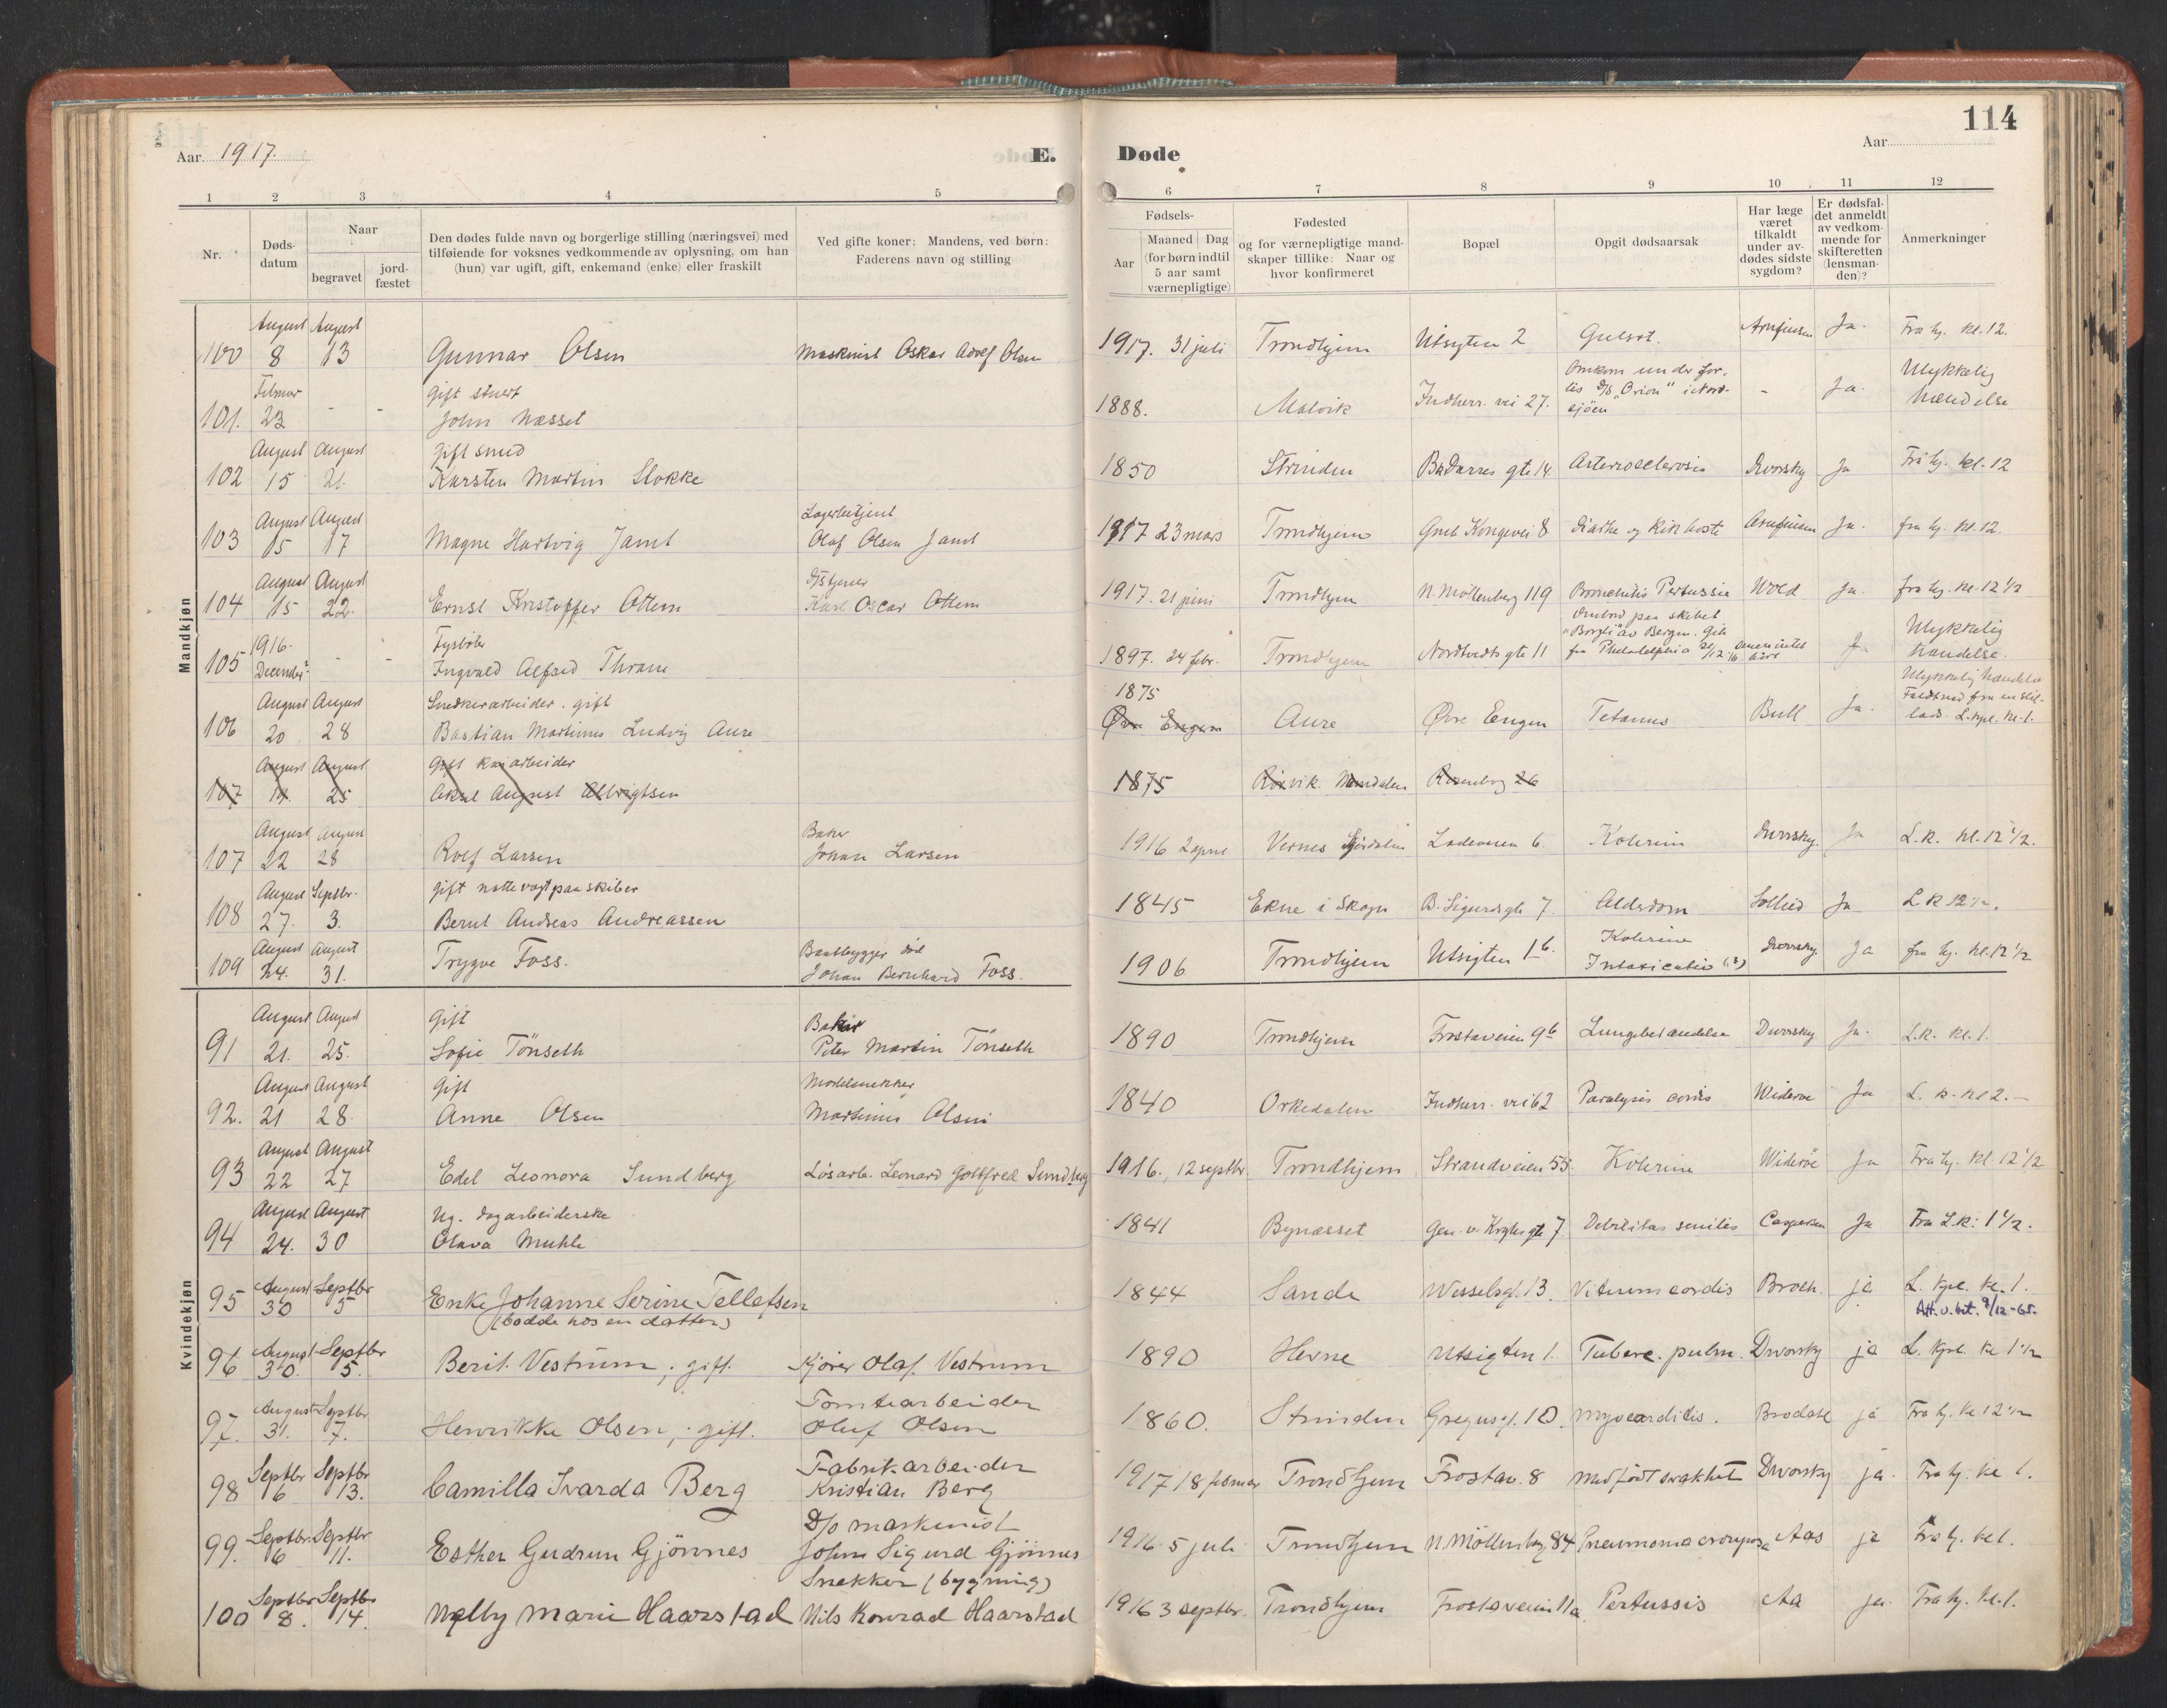 114
Aar 1917.
E.
Døde
Aar
1 2 3 4 5 6 7 8 9 10 11 12
Nr.
Døds-datum
Naar
begravet
jord-fæstet
Den dødes fulde navn og borgerlige stilling (næringsvei) med
tilføiende for voksnes vedkommende av oplysning, om han
(hun) var ugift, gift, enkemand (enke) eller fraskilt
Ved gifte koner: Mandens, ved børn:
Faderens navn og stilling
Fødsels-
Aar
Maaned Dag
(for børn indtil
5 aar samt
værnepligtige)
Fødested
og for værnepligtige mand-
skaper tillike: Naar og
hvor konfirmeret
Bopæl
Opgit dødsaarsak
Har læge
været
tilkaldt
under av-
dødes sidste
sygdom?
Er dødsfal-
det anmeldt
av vedkom-
mende for
skifteretten
(lensman-
den)?
Anmerkninger
Mandkjøn
August August
100 8 13 Gunnar Olsen Maskinist Oskar Adolf Olsen 1917. 31 juli Trondhjem Utsigten 2 Gulsot. Ja. Fra hj. kl. 12.
Februar gift stuert Omkom under for-
lis D/S "Orion" i Nord-
sjöen
101. 23 - - John Næsset 1888. Malvik Indherr. vei 27. - Ja. Ulykkelig
hændelse
August August gift smed
102 15 21. Karsten Martin Slokke 1850 Strinden gte 14 Arteriosclerosis Dworsky Ja Fra hj. kl. 12
August August Lagerbetjent
103 15 17 Magne Hartvig Jamt Olaf Olsen Jamt 1917 23 mars Trondhjem Gml. Kongevei 8 og Kikhoste Ja. fra hj. kl. 12.
August August
104 15 22. Ernst Kristoffer Ottem Karl Oscar Ottem 1917. 21 juni Trondhjem N. Möllenberg 119 Bronchitis Pertussis Wold Ja. fra hj. kl. 12 1/2
1916. Fyrböter Ombord paa skibet
"Borgli" av Bergen. Gik
fra Philadelphia
105 December? - - Ingvald Alfred Thrane 1897. 24 febr. Trondhjem Nordtvedts gte 11 Ja Ulykkelig
hændelse.
August August Snedkerarbeider. gift 1875
106 20 28 Bastian Martinus Ludvig Aure Øvre Engen Aure Øvre Engen Tetanus Bull Ja. Ulykkelig hændelse
Faldt ned fra en stil-
lads. L. kpl. kl. 1.
August August gift kaiarbeider
107 14. 25 Aksel August Albrigtsen 1875 Rosenborg 26
August August Baker
107 22 28 Rolf Larsen Johan Larsen 1916 2 april Vernes Stjördalen Ladeveien 6. Kolerin Dworsky Ja L.K. kl. 12 1/2.
August Septbr. gift nattevagt paa skiber
108 27. 3. Bernt Andreas Andreassen 1845 Ekne i Skogn B. Sigurds gte 7 Alderdom Ja L K 12 1/2.
August August Baatbygger död
109 24. 31. Trygve Foss. Johan Bernhard Foss. 1906 Trondhjem Utsigten 1 b. Kolerine
Intoxicatio (?) Dworsky Ja fra hj. kl. 12 1/2
Kvindekjøn
August August Gift Baker
91 21. 25. Sofie Tönseth Peter Martin Tönseth 1890 Trondhjem Frostaveien 9 b Lungebetændelse Dworsky Ja. L.K. kl. 1.
August August Gift Modelsnekker
92. 21 28. Anne Olsen Martinus Olsen 1840 Orkedalen Indherr. vei 62 Paralysis cordis Wideröe Ja L. K. kl 2. -
August August
93 22 27 Edel Leonora Sundberg Lösarb. Leonard Gottfred Sundberg 1916., 12 septbr. Trondhjem Strandveien 55. Kolerine Wideröe Ja Fra hj. kl 12 1/2
August August Ug. dagarbeiderske
94 24. 30 Olava Muhle 1841 Bynæsset Gen. v. Kroghs gte 7. Debilitas senilis Caspersen Ja Fra L.K. 1 1/2.
August Septbr
95 30 5 Enke Johanne Serine Tellefsen
(bodde hos en datter) 1844 Sande Wesselsgt. 13. Vitium cordis Broch. ja L. kpl. kl. 1.
Att. u. bet. 9/12-65.
August Septbr
96 30. 5. Berit Vestrum, gift. Kjörer Olaf Vestrum 1890 Hevne Utsigten 1. Tuberc. pulm. Dworsky ja L. kpl. kl 1 1/2
August Septbr Tomtearbeider
97. 31. 7. Henrikke Olsen, gift. Oluf Olsen 1860. Strinden Gregusgt. 10. Myocarditis. ja Fra hj. kl 12 1/2
Septbr Septbr Fabrikarbeider
98 6 13. Camilla Ivarda Berg Kristian Berg 1917 18 februar Trondhjem Frostav. 8 Medfödt svakhet Dworsky ja. Fra hj. kl 1.
Septbr. Septbr D/s maskinist
99. 6 11. Esther Gudrun Gjönnes John Sigurd Gjönnes 1916 5 juli Trondhjem N. Möllenberg 84 Pneumonia crouposa Aas ja Fra hj. kl 1.
Septbr Septbr Snekker (bygning)
100 8. 14. Nelly Marie Haarstad Nils Konrad Haarstad 1916 3 septbr. Trondhjem Frostaveien 11a Pertussis Aa ja. Fra hj. kl. 1.